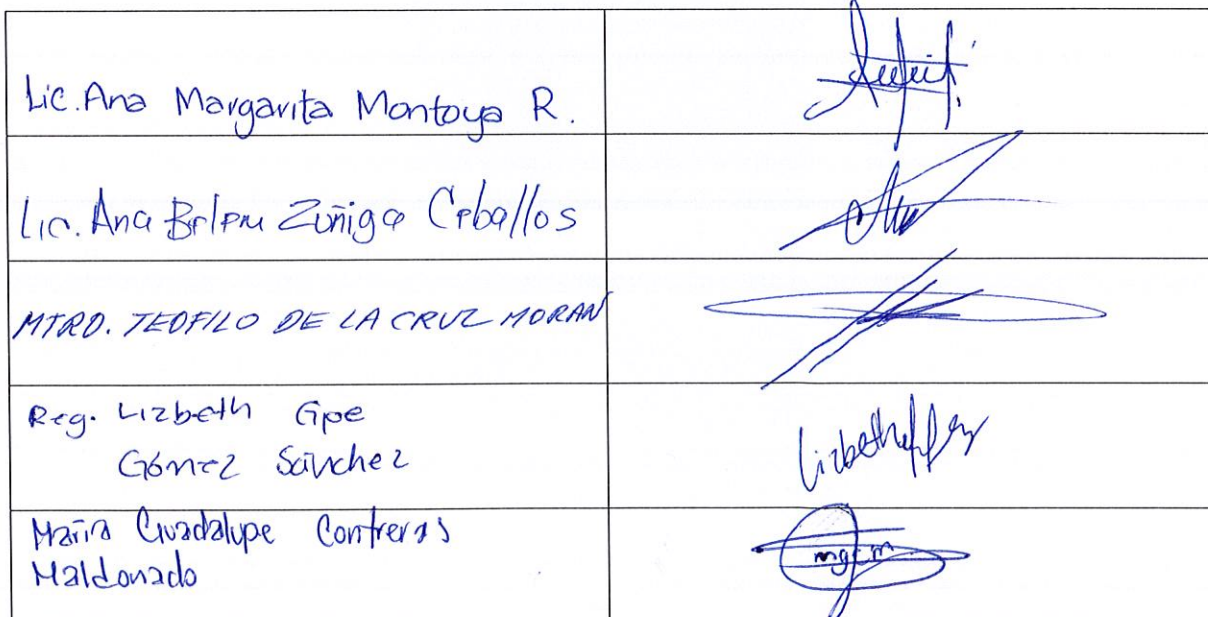 Lic. Ana Margarita Montoya R.
Lic. Ana Belem Zúñiga Ceballos
MTRO. TEOFILO DE LA CRUZ MORAN
Reg. Lizbeth Gpe
Gómez Sánchez
Lizbeth
María Guadalupe Contreras
Maldonado
mgcm